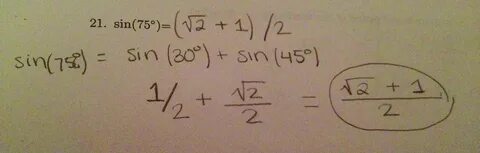 21. sin(75°)=(√2 + 1) /2
sin(75°) = sin(30°) + sin(45°)
1/2 + √2/2 = (√2 + 1)/2